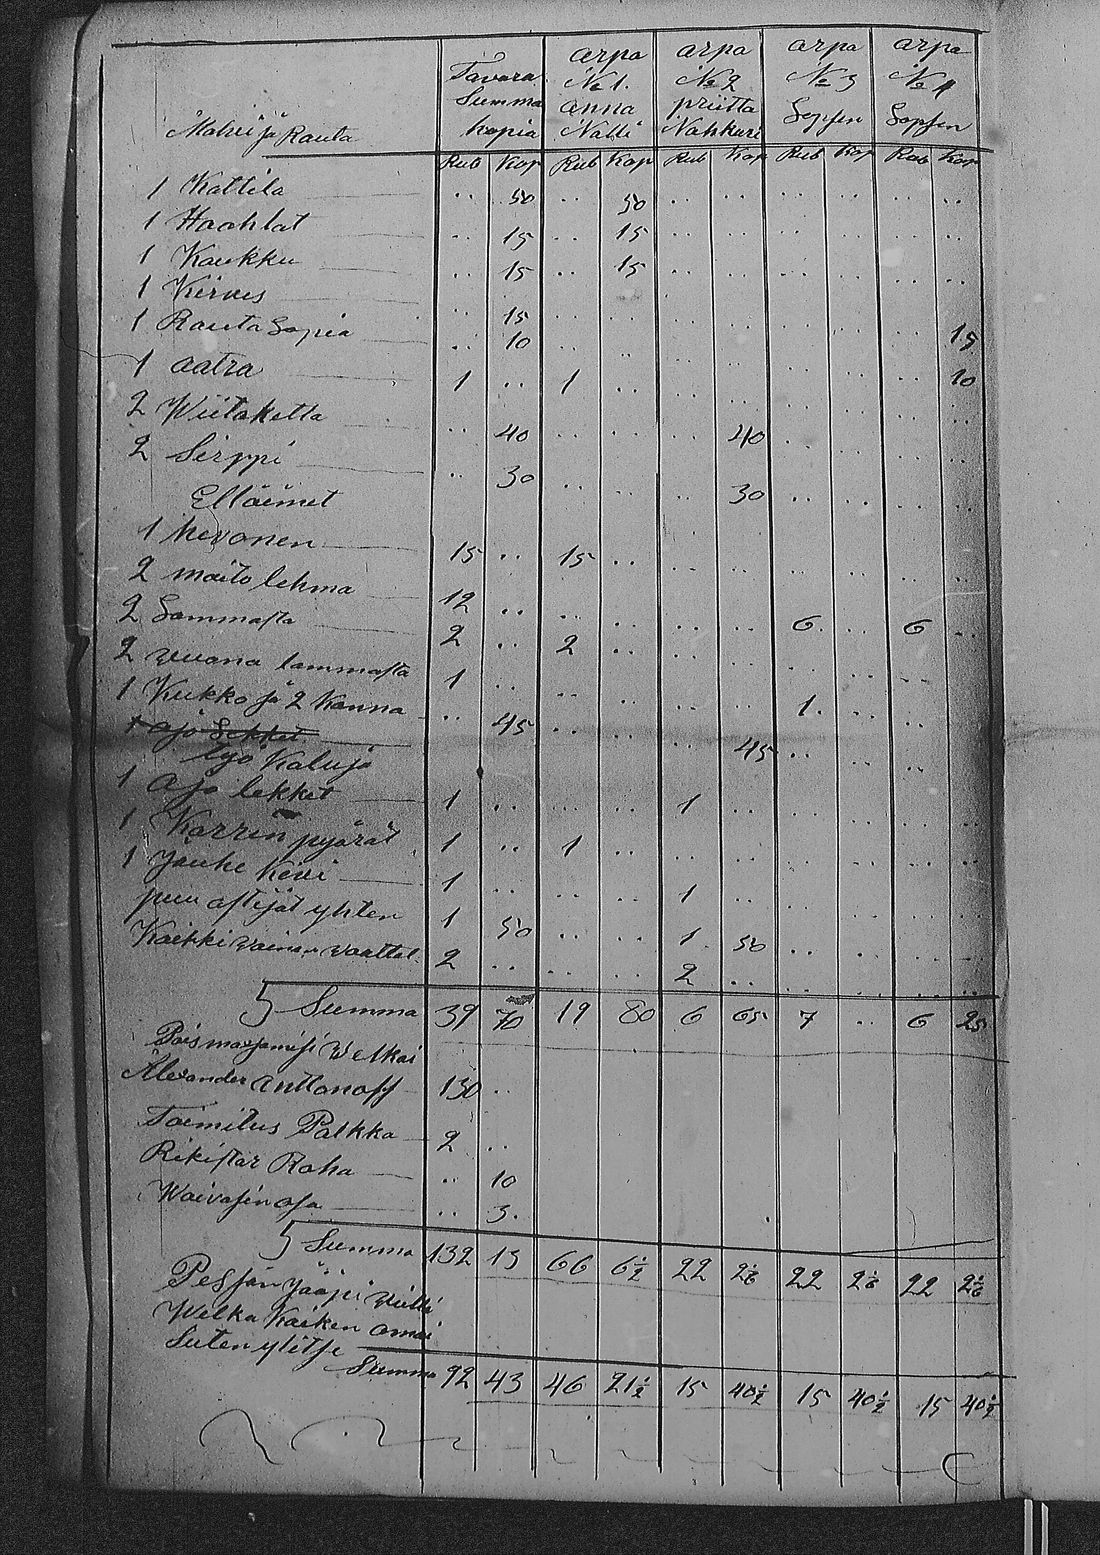 Tavara Summa kopia | arpa № 1. anna Nätti | arpa № 2 priitta Nahkuri | arpa № 3 Sopfen | arpa № 4 Sopfen
Malmi ja Rauta | Rub Kop | Rub Kop | Rub Kop | Rub Kop | Rub Kop
1 Kattila .. 50 .. 50 .. .. .. .. .. ..
1 Haahlat .. 15 .. 15 .. .. .. .. .. ..
1 Koukku .. 15 .. 15 .. .. .. .. .. ..
1 Kirves .. 15 .. .. .. .. .. .. .. 15
1 Rauta Sapia .. 10 .. .. .. .. .. .. .. 10
1 aatra 1 .. 1 .. .. .. .. .. .. ..
2 Wiitaketta .. 40 .. .. .. 40 .. .. .. ..
2 Sirppi .. 30 .. .. .. 30 .. .. .. ..
Elläimet
1 hevonen 15 .. 15 .. .. .. .. .. .. ..
2 maito lehma 12 .. .. .. .. .. 6. .. 6 ..
2 Lammasta 2 .. 2 .. .. .. .. .. .. ..
2 vuona lammasta 1 .. .. .. .. .. 1. .. .. ..
1 Kukko ja 2 Kanna .. 45 .. .. .. 45 .. .. .. ..
1 ajo Lekket
työ Kaluja
1 Ajo lekket 1 .. .. .. 1 .. .. .. .. ..
1 Kärrin pyärät 1 .. 1 .. .. .. .. .. .. ..
1 Jauho Kivi 1 .. .. .. 1 .. .. .. .. ..
puu astijat yhten 1 50 .. .. 1. 50 .. .. .. ..
Kaikki vainan vaattet. 2 .. .. .. 2 .. .. .. .. ..
Summa 39 70 19 80 6 65 7 .. 6 25
Pois maxjamisi Welkai
Alexander Anttonoff 130 ..
Toimitus Palkka 2 ..
Rikistär Raha .. 10
Waivasin osa .. 3.
Summa 132 13 66 6½ 22 2⅙ 22 2⅙ 22 2⅙
Pesjän Jääpi vielä
Welka Kaiken omai
Suten ylitse
Summa 92 43 46 21½ 15 40½ 15 40½ 15 40½